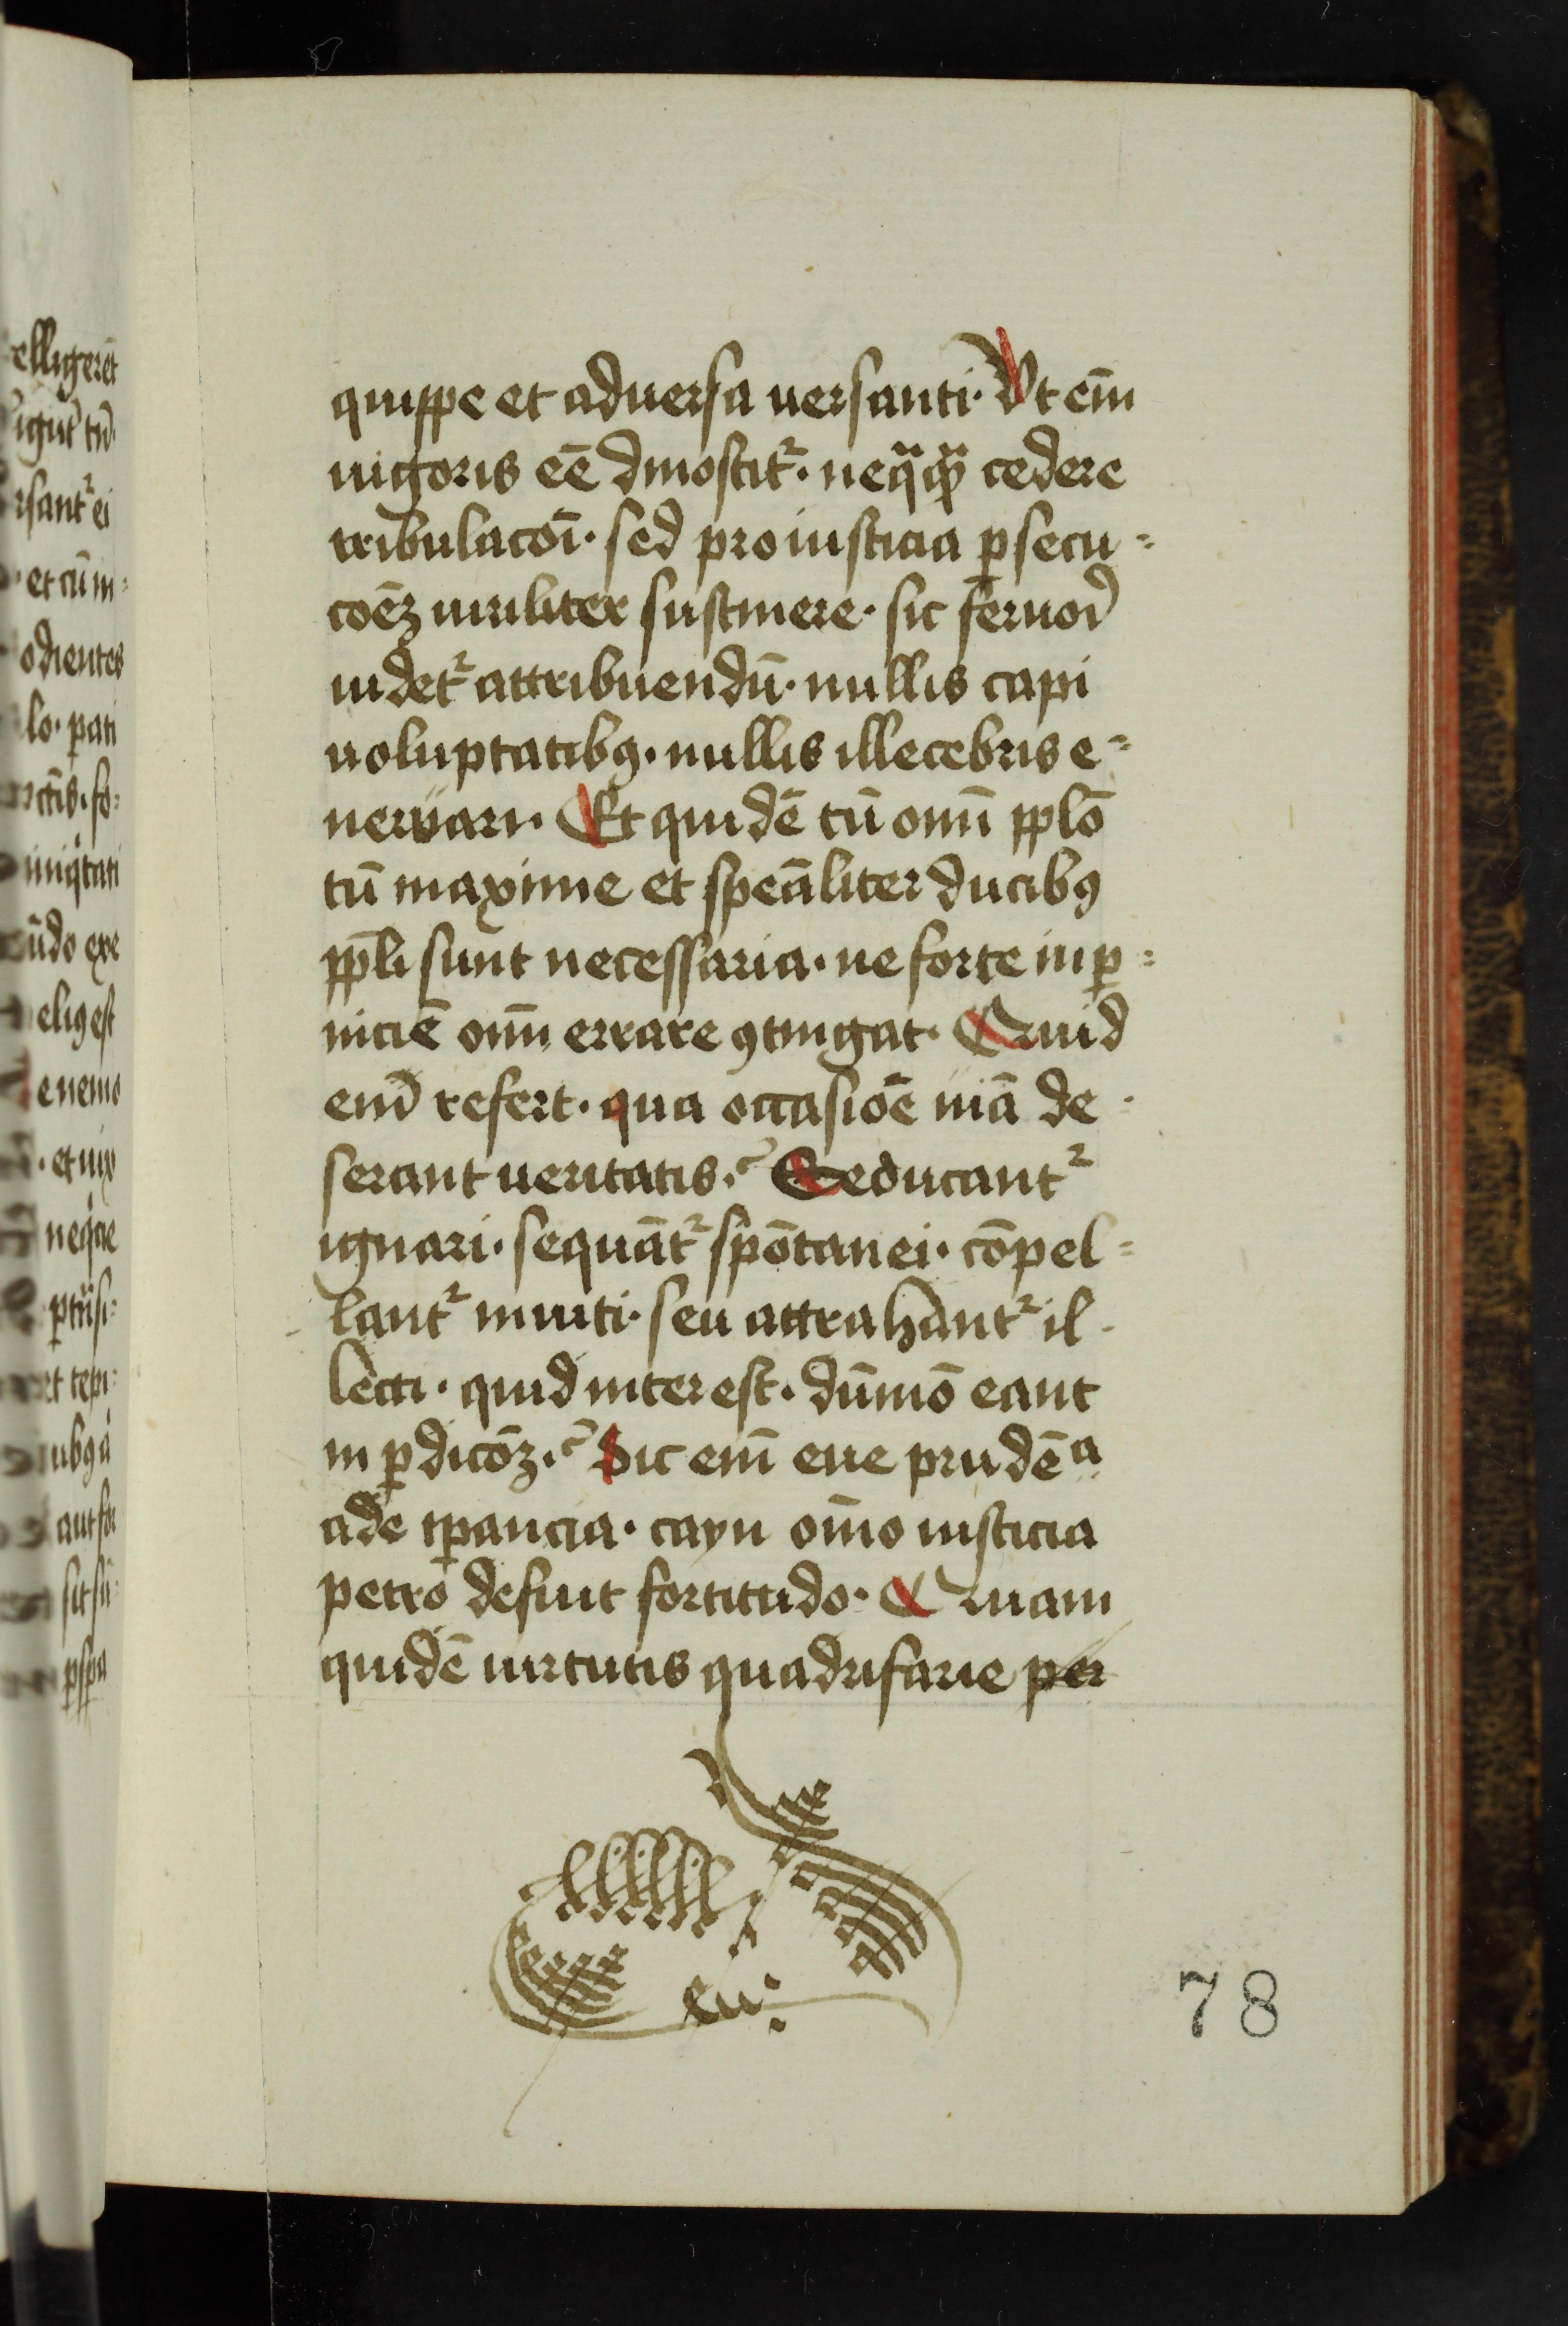 quippe et aduersa uersanti. Vt em̄
uigoris eē dinoscit᷑. neq̈q̈ꝫ cedere
tribulacōī. sed pro iusticia ꝑsecu=
coēꝫ uiriliter sustinere. sic feruorͥ
uidet᷑ attribuendū. nullis capi
uoluptatibꝰ. nullis illecebris e=
neruari. Et quidē cū omī pplō
tū maxime et speāliter ducibꝰ
ppl̄i sunt necessaria. ne forte in ꝑ=
niciē omī errare ꝯtingat. Quid
enī refert. qua occasiōe uiā de-
serant ueritatis.? Seducant᷑
ignari. sequāt᷑ spōtanei. cōpel=
lant᷑ inuiti. seu attrahant᷑ il-
lecti. quid interest. dūmō eant
in ꝑdicōꝫ.? Sic enī eue prudēᵃ
ade tꝑancia. cayn om̄o iusticia
petro defuit fortitudo. Quam
quidē uirtutis quadrifarie per
eu
78
elligerēt
igit᷑ tn̄
rsant᷑ ei
et cū in=
odientes
lo. pati
ctis. fo=
iniq̇tati
ūdo exe
elig est
e nemo
. et uix
neq̇ae
et tepi=
aut for
sit sū=